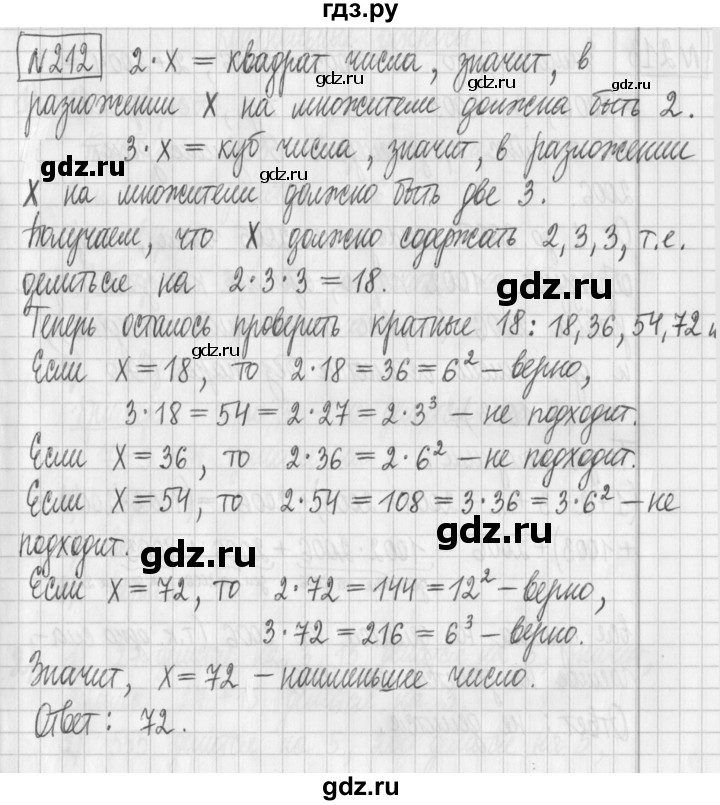 гдз.ру
№212 2·x = квадрат числа, значит, в
gdz.ru
разложении x на множители должна быть 2.
gdz.ru
3·x = куб числа, значит, в разложении
gdz.ru
gdz.ru
x на множители должно быть две 3.
Получаем, что x должно содержать 2, 3, 3, т.е.
делиться на 2·3·3 = 18.
gdz.ru
Теперь осталось проверить кратные 18: 18, 36, 54, 72 и
gdz.ru
Если x = 18, то 2·18 = 36 = 6² – верно,
3·18 = 54 = 2·27 = 2·3³ – не подходит.
Если x = 36, то 2·36 = 2·6² – не подходит.
Если x = 54, то 2·54 = 108 = 3·36 = 3·6² – не
gdz.ru
подходит.
gdz.ru
Если x = 72, то 2·72 = 144 = 12² – верно,
3·72 = 216 = 6³ – верно.
Значит, x = 72 – наименьшее число.
Ответ: 72.
gdz.ru